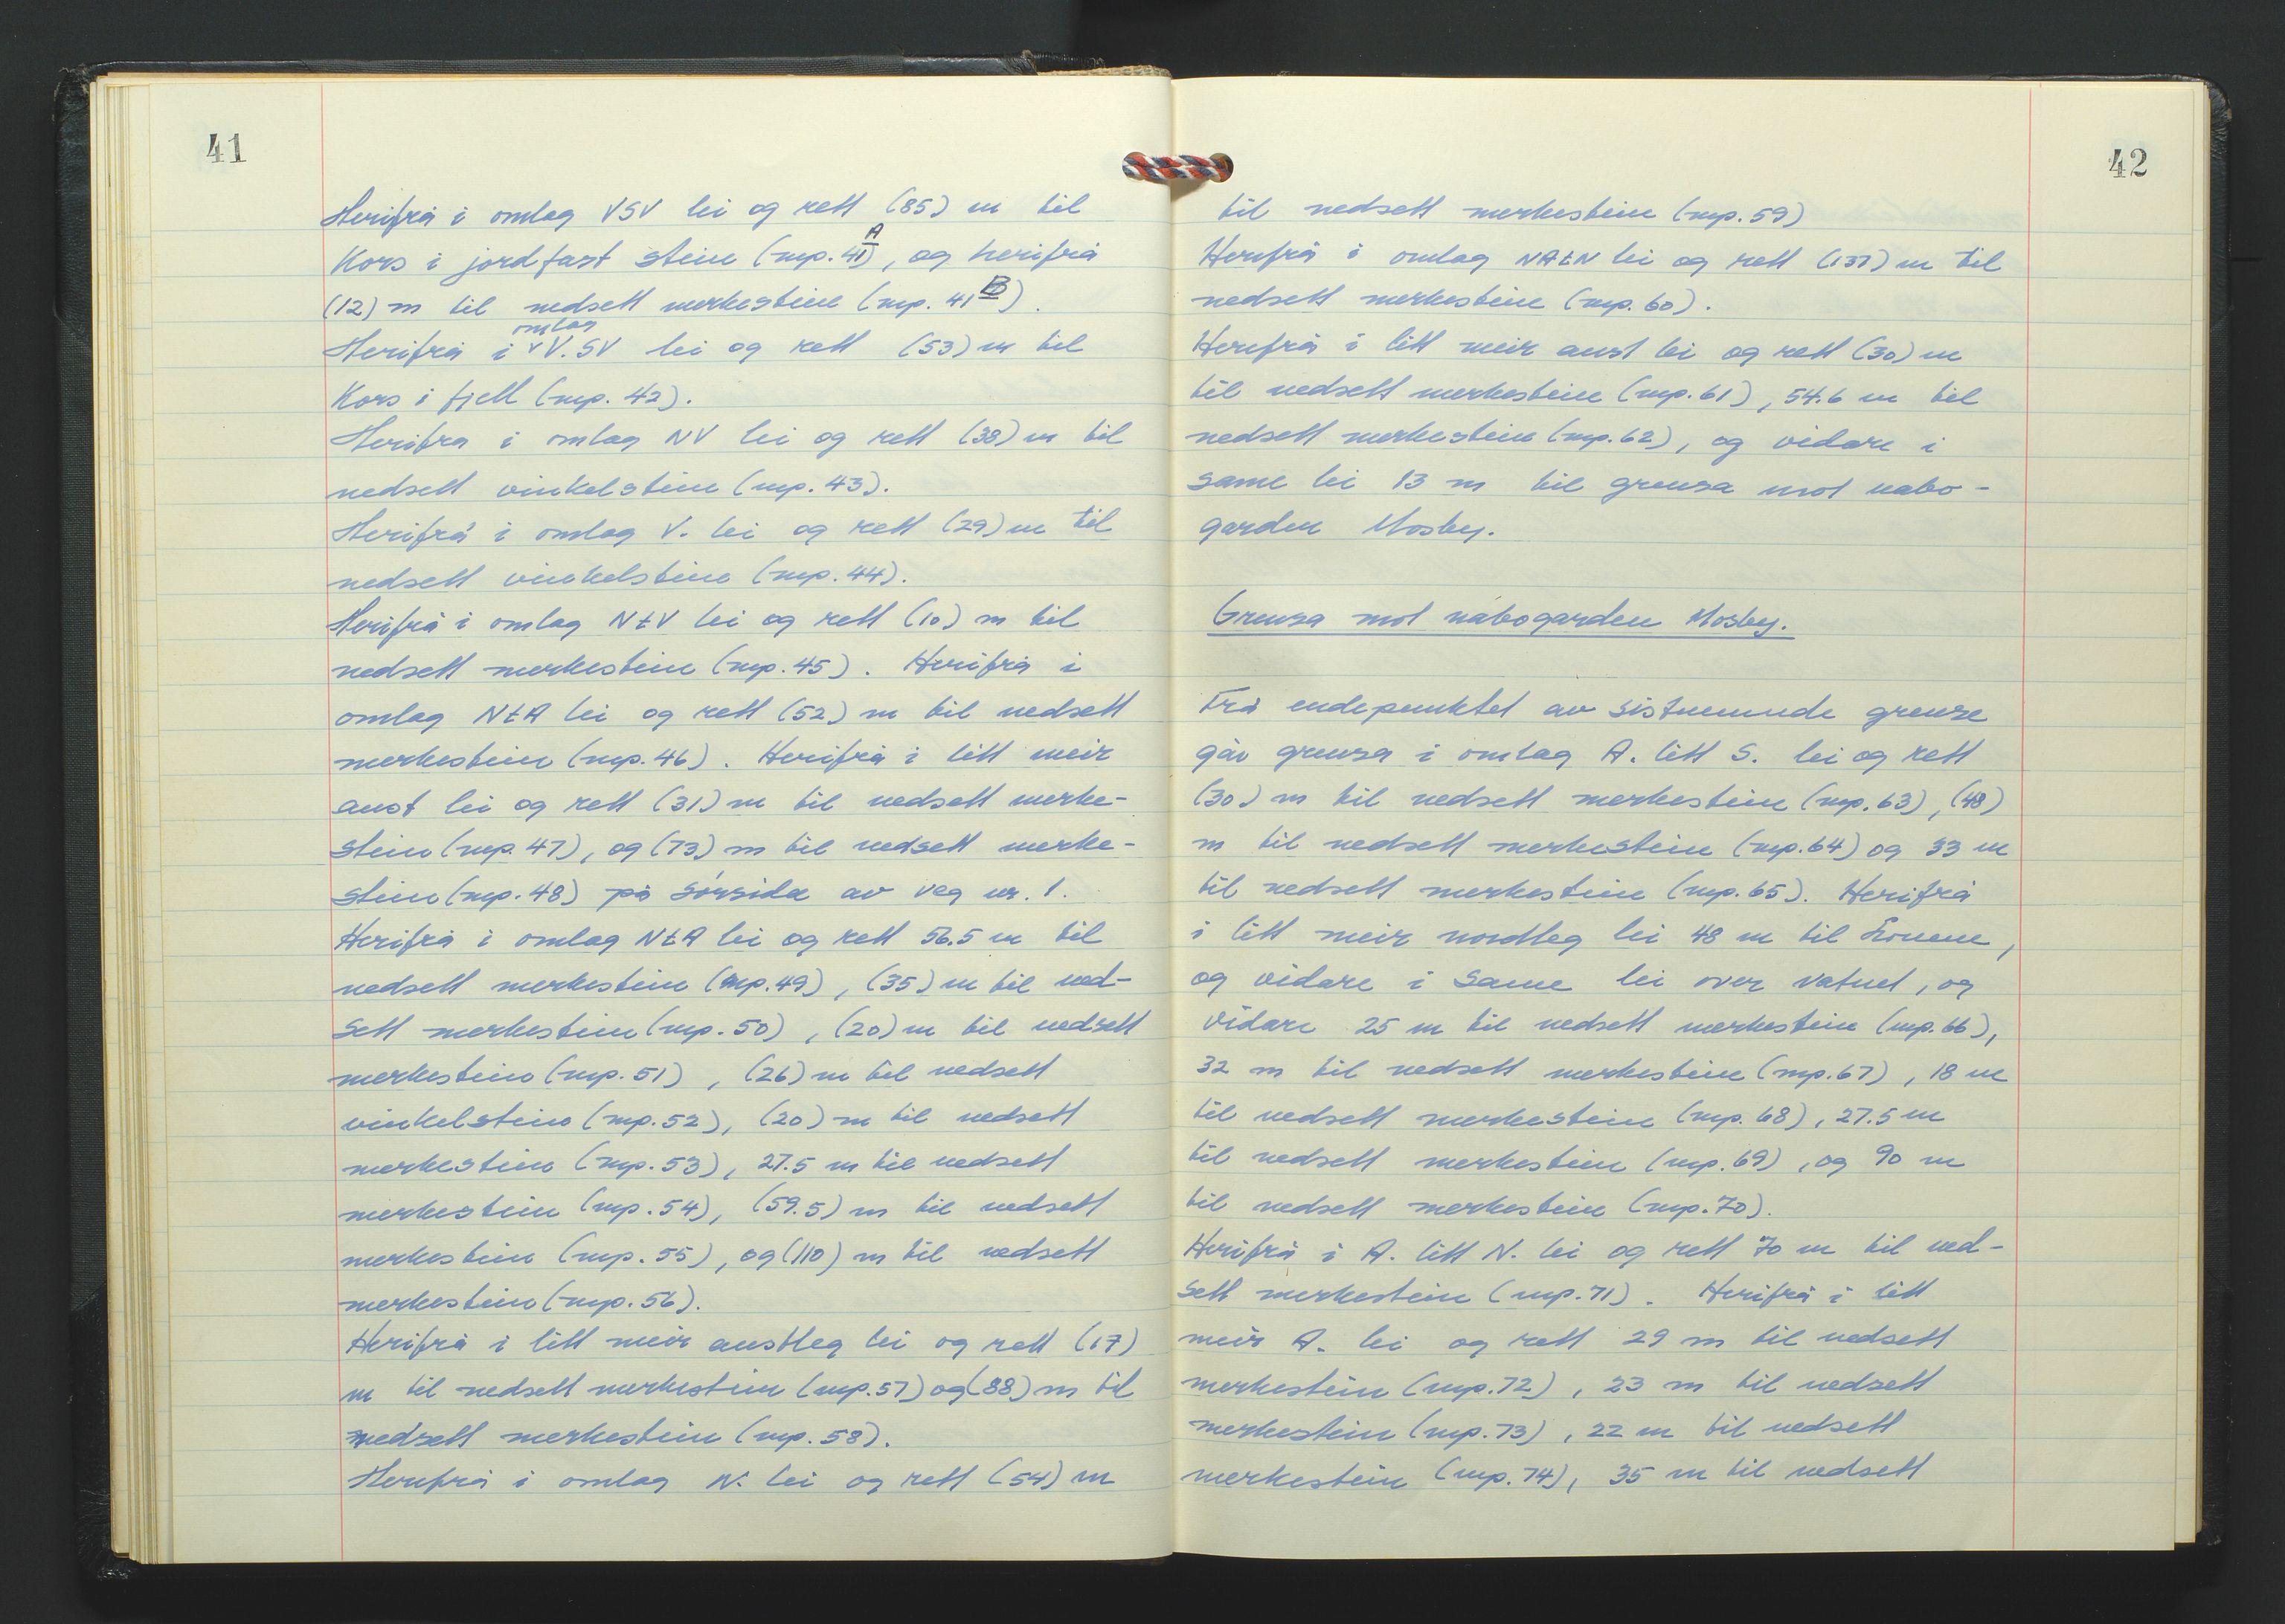 41
Herifrå i omlag VSV lei og rett (85) m til
Kors i jordfast stein (mp. 41A), og herifrå
(12) m til nedsett merkestein (mp. 41B).
Herifrå i omlag V. SV lei og rett (53) m til
Kors i fjell (mp. 42).
Herifra i omlag NV lei og rett (38) m til
nedsett vinkelstein (mp. 43).
Herifrå i omlag V. lei og rett (29) m til
nedsett vinkelstein (mp. 44).
Herifrå i omlag NtV lei og rett (10) m til
nedsett merkestein (mp. 45). Herifrå i
omlag NtA lei og rett (52) m til nedsett
merkestein (mp. 46). Herifrå i litt meir
aust lei og rett (31) m til nedsett merke-
stein (mp. 47), og (73) m til nedsett merke-
stein (mp. 48) på sørsida av veg nr. 1.
Herifrå i omlag NtA lei og rett 56.5 m til
nedsett merkestein (mp. 49), (35) m til ned-
sett merkestein (mp. 50), (20) m til nedsett
merkestein (mp. 51), (26) m til nedsett
vinkelstein (mp. 52), (20) m til nedsett
merkestein (mp. 53), 27.5 m til nedsett
merkestein (mp. 54), (59.5) m til nedsett
merkestein (mp. 55), og (110) m til nedsett
merkestein (mp. 56).
Herifrå i litt meir austleg lei og rett (17)
m til nedsett merkestein (mp. 57) og (88) m til
nedsett merkestein (mp. 58).
Herifrå i omlag N. lei og rett (54) m
42
til nedsett merkestein (mp. 59)
Herifrå i omlag NAtN lei og rett (137) m til
nedsett merkestein (mp. 60).
Herifrå i litt meir aust lei og rett (30) m
til nedsett merkestein (mp. 61), 54.6 m til
nedsett merkestein (mp. 62), og vidare i
same lei 13 m til grensa mot nabo-
garden Mosby.
Grensa mot nabogarden Mosby.
Frå endepunktet av sistnemnde grense
går grensa i omlag A. litt S. lei og rett
(30) m til nedsett merkestein (mp. 63), (48)
m til nedsett merkestein (mp. 64) og 33 m
til nedsett merkestein (mp. 65). Herifrå
i litt meir nordleg lei 48 m til Lonene,
og vidare i same lei over vatnet, og
vidare 25 m til nedsett merkestein (mp. 66),
32 m til nedsett merkestein (mp. 67), 18 m
til nedsett merkestein (mp. 68), 27.5 m
til nedsett merkestein (mp. 69), og 90 m
til nedsett merkestein (mp. 70).
Herifrå i A. litt N. lei og rett 70 m til ned-
sett merkestein (mp. 71). Herifrå i litt
meir A. lei og rett 29 m til nedsett
merkestein (mp. 72), 23 m til nedsett
merkestein (mp. 73), 22 m til nedsett
merkestein (mp. 74), 35 m til nedsett